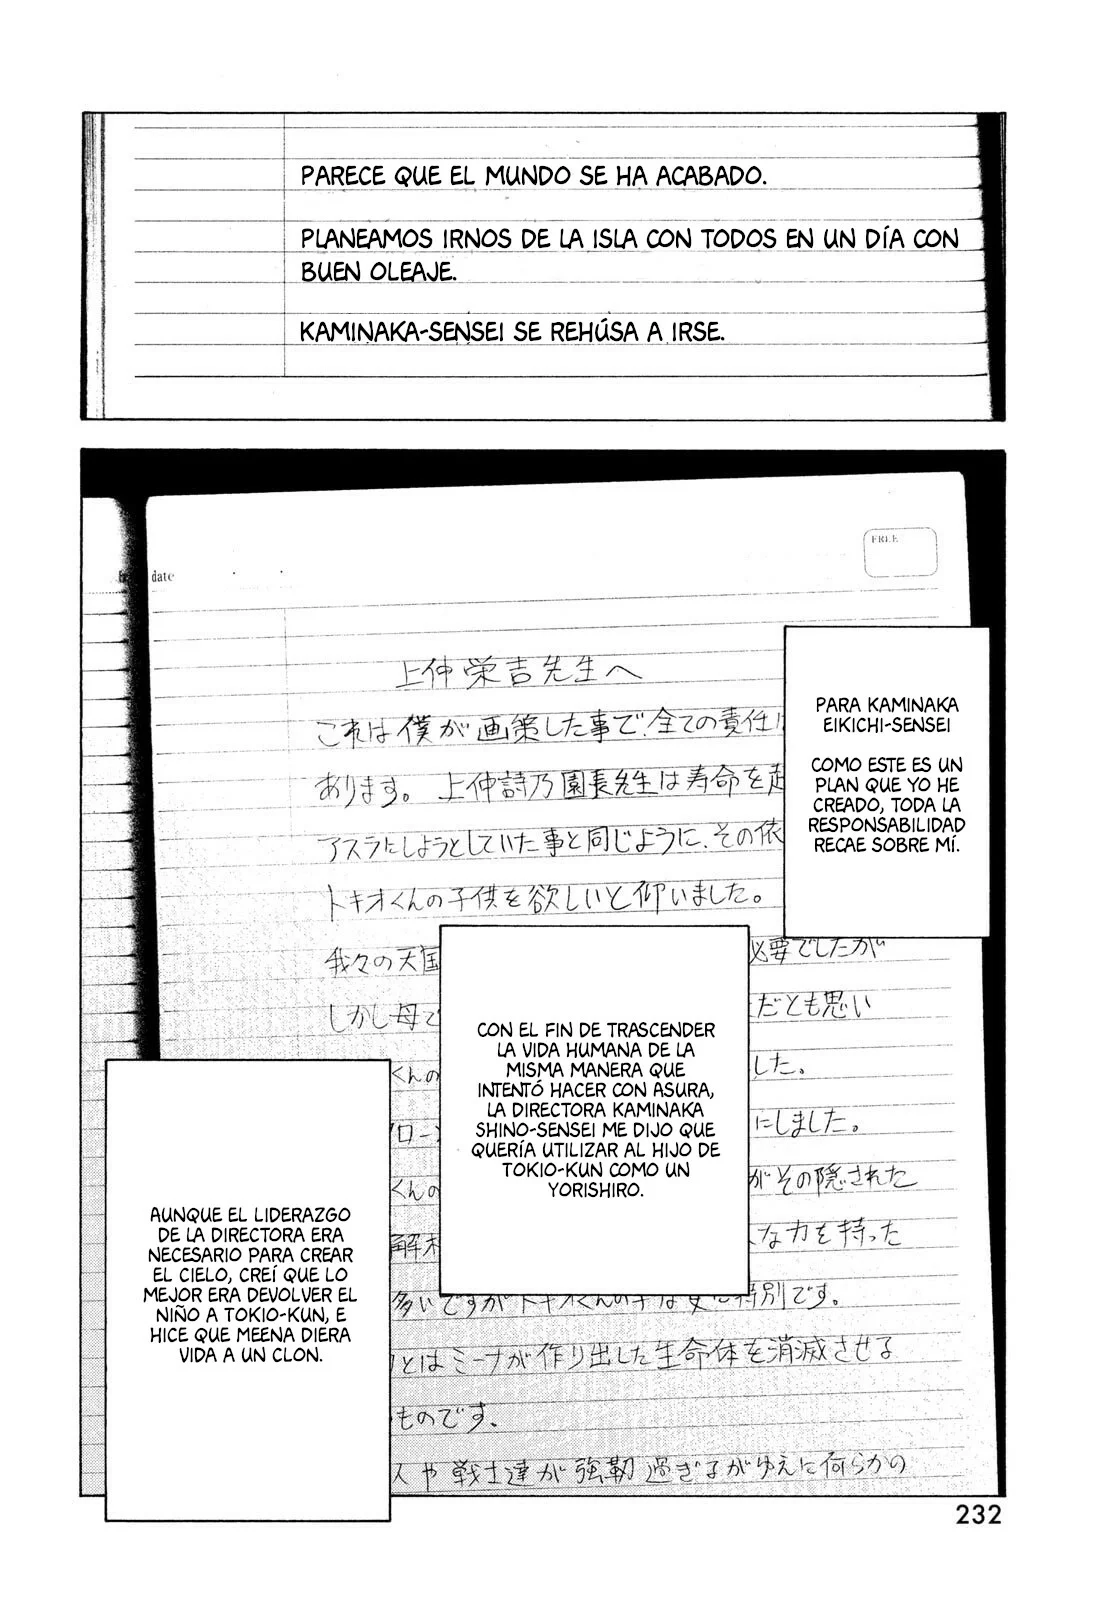 PARECE QUE EL MUNDO SE HA ACABADO.
PLANEAMOS IRNOS DE LA ISLA CON TODOS EN UN DÍA CON
BUEN OLEAJE.
KAMINAKA-SENSEI SE REHÚSA A IRSE.
FREE
date
上仲栄吉先生へ
これは僕が画策した事で、全ての責任は
あります。上仲詩乃園長先生は寿命を
アスラにしようとしていた事と同じように、その依
トキオくんの子供を欲しいと仰いました。
我々の天国
必要でしたが
しかし母で
だとも思い
くんの
した。
クローン
にしました。
くんの
がその隠された
解
な力を持った
多いですがトキオくんの子は更に特別です。
とはミーナが作り出した生命体を消滅させる
ものです。
や戦士達が強靭過ぎるがゆえに何らかの
PARA KAMINAKA
EIKICHI-SENSEI
COMO ESTE ES UN
PLAN QUE YO HE
CREADO, TODA LA
RESPONSABILIDAD
RECAE SOBRE MÍ.
CON EL FIN DE TRASCENDER
LA VIDA HUMANA DE LA
MISMA MANERA QUE
INTENTÓ HACER CON ASURA,
LA DIRECTORA KAMINAKA
SHINO-SENSEI ME DIJO QUE
QUERÍA UTILIZAR AL HIJO DE
TOKIO-KUN COMO UN
YORISHIRO.
AUNQUE EL LIDERAZGO
DE LA DIRECTORA ERA
NECESARIO PARA CREAR
EL CIELO, CREÍ QUE LO
MEJOR ERA DEVOLVER EL
NIÑO A TOKIO-KUN, E
HICE QUE MEENA DIERA
VIDA A UN CLON.
232